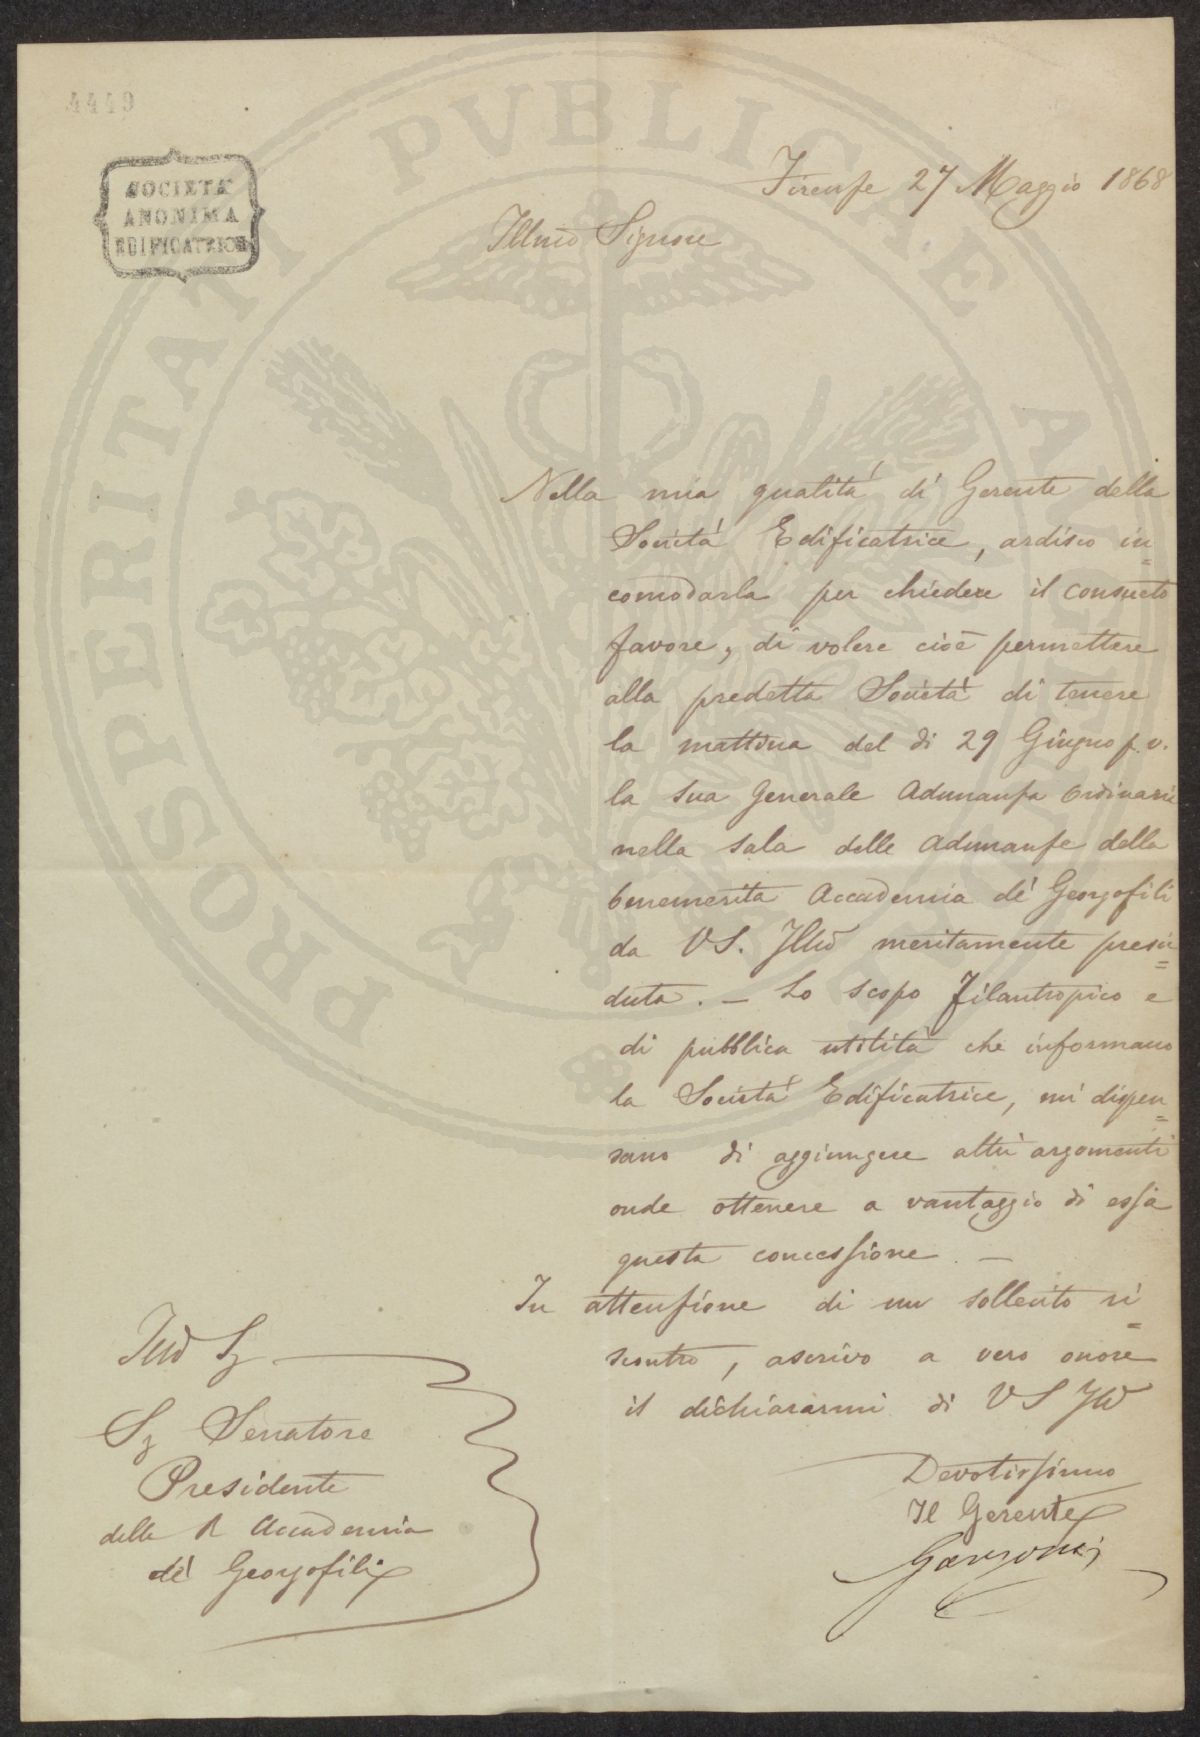 4449
SOCIETÀ
ANONIMA
EDIFICATRICE
Firenze 27 Maggio 1868
Illmo Signore
Nella mia qualità di Gerente della
Società Edificatrice, ardisco in=
comodarla per chiedere il consueto
favore, di volere cioè permettere
alla predetta Società di tenere
la mattina del di 29 Giugno p. v.
la sua Generale Adunanza Ordinaria
nella sala delle Adunanze della
benemerita Accademia de' Georgofili
da VS. Illmo meritamente presie=
duta. — Lo scopo Filantropico e
di pubblica utilità che informano
la Società Edificatrice, mi dispen=
sano di aggiungere altri argomenti
onde ottenere a vantaggio di essa
questa concessione. —
In attenzione di un sollecito ri=
scontro, ascrivo a vero onore
il dichiararmi di VS Ill
Devotissimo
Il Gerente
Garzoni
Illmo Sg
Sg Senatore
Presidente
della R Accademia
de' Georgofili
PROSPERITATI PVBLICAE AVGENDAE